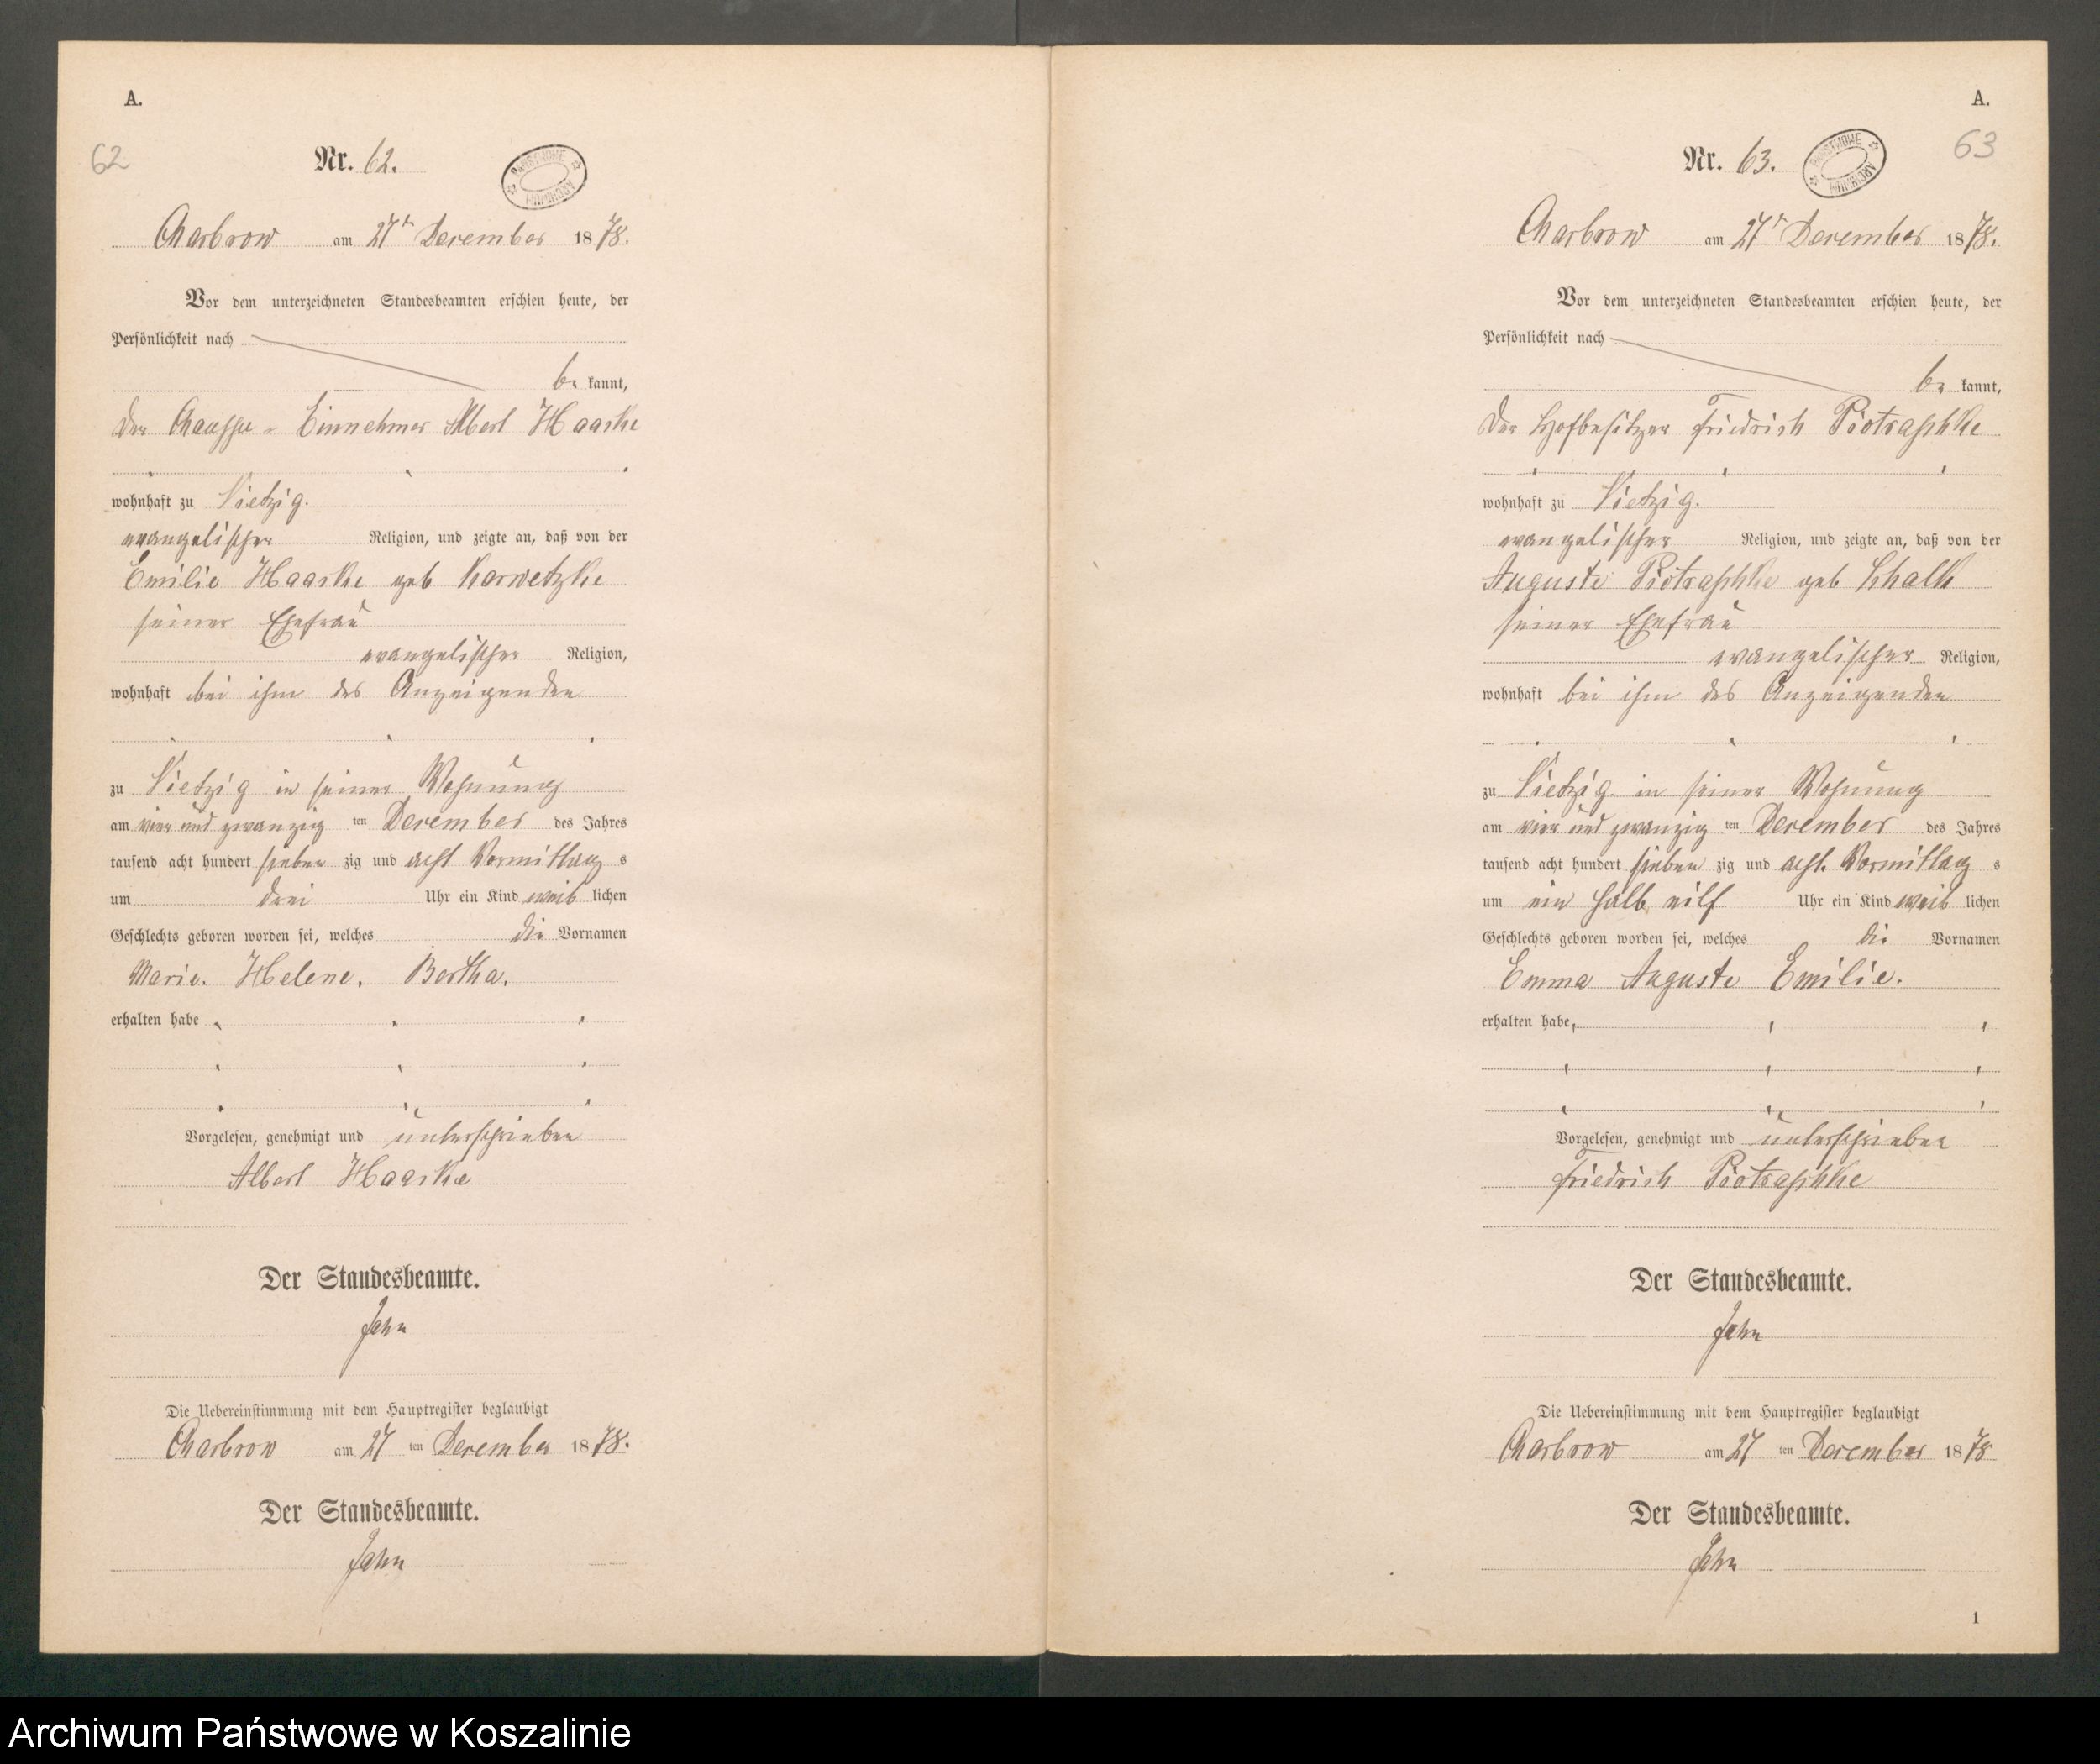 A.
62
Nr. 62.
ARCHIWUM PAŃSTWOWE
Charbrow am 27t December 1878.
Vor dem unterzeichneten Standesbeamten erschien heute, der
Persönlichkeit nach
be kannt,
der Chaussee-Einnehmer Albert Haaske
wohnhaft zu Vietzig.
evangelischer Religion, und zeigte an, daß von der
Emilie Haaske geb Karwetzke
seiner Ehefrau
evangelischer Religion,
wohnhaft bei ihm des Anzeigenden
zu Vietzig in seiner Wohnung
am vier und zwanzig ten December des Jahres
tausend acht hundert sieben zig und acht Vormittag s
um drei Uhr ein Kind weib lichen
Geschlechts geboren worden sei, welches die Vornamen
Marie. Helene. Bertha.
erhalten habe
Vorgelesen, genehmigt und unterschrieben
Albert Haaske
Der Standesbeamte.
Jahn
Die Uebereinstimmung mit dem Hauptregister beglaubigt
Charbrow am 27 ten December 1878.
Der Standesbeamte.
Jahn
A.
63
Nr. 63.
ARCHIWUM PAŃSTWOWE
Charbrow am 27t December 1878.
Vor dem unterzeichneten Standesbeamten erschien heute, der
Persönlichkeit nach
be kannt,
der Hofbesitzer Friedrich Piotraschke
wohnhaft zu Vietzig.
evangelischer Religion, und zeigte an, daß von der
Auguste Piotraschke geb Schalk
seiner Ehefrau
evangelischer Religion,
wohnhaft bei ihm des Anzeigenden
zu Vietzig. in seiner Wohnung
am vier und zwanzig ten December des Jahres
tausend acht hundert sieben zig und acht. Vormittag s
um ein halb eilf Uhr ein Kind weib lichen
Geschlechts geboren worden sei, welches die Vornamen
Emma Auguste Emilie.
erhalten habe,
Vorgelesen, genehmigt und unterschrieben
Friedrich Piotraschke
Der Standesbeamte.
Jahn
Die Uebereinstimmung mit dem Hauptregister beglaubigt
Charbrow am 27 ten December 1878
Der Standesbeamte.
Jahn
1
Archiwum Państwowe w Koszalinie